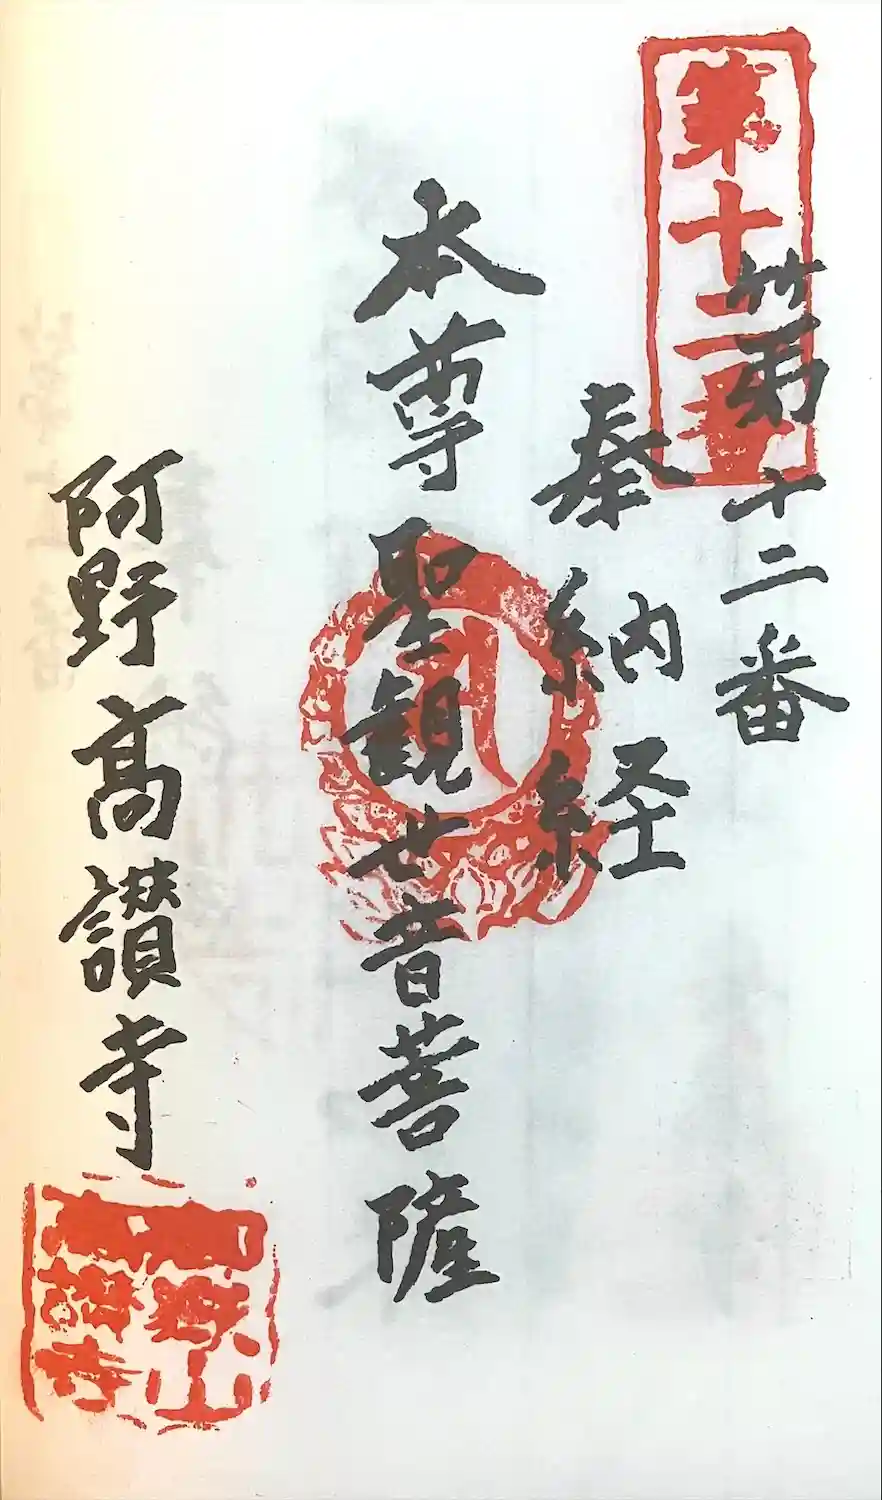 第十二番
第十二番
奉納経
本尊聖観世音菩薩
阿野高讃寺